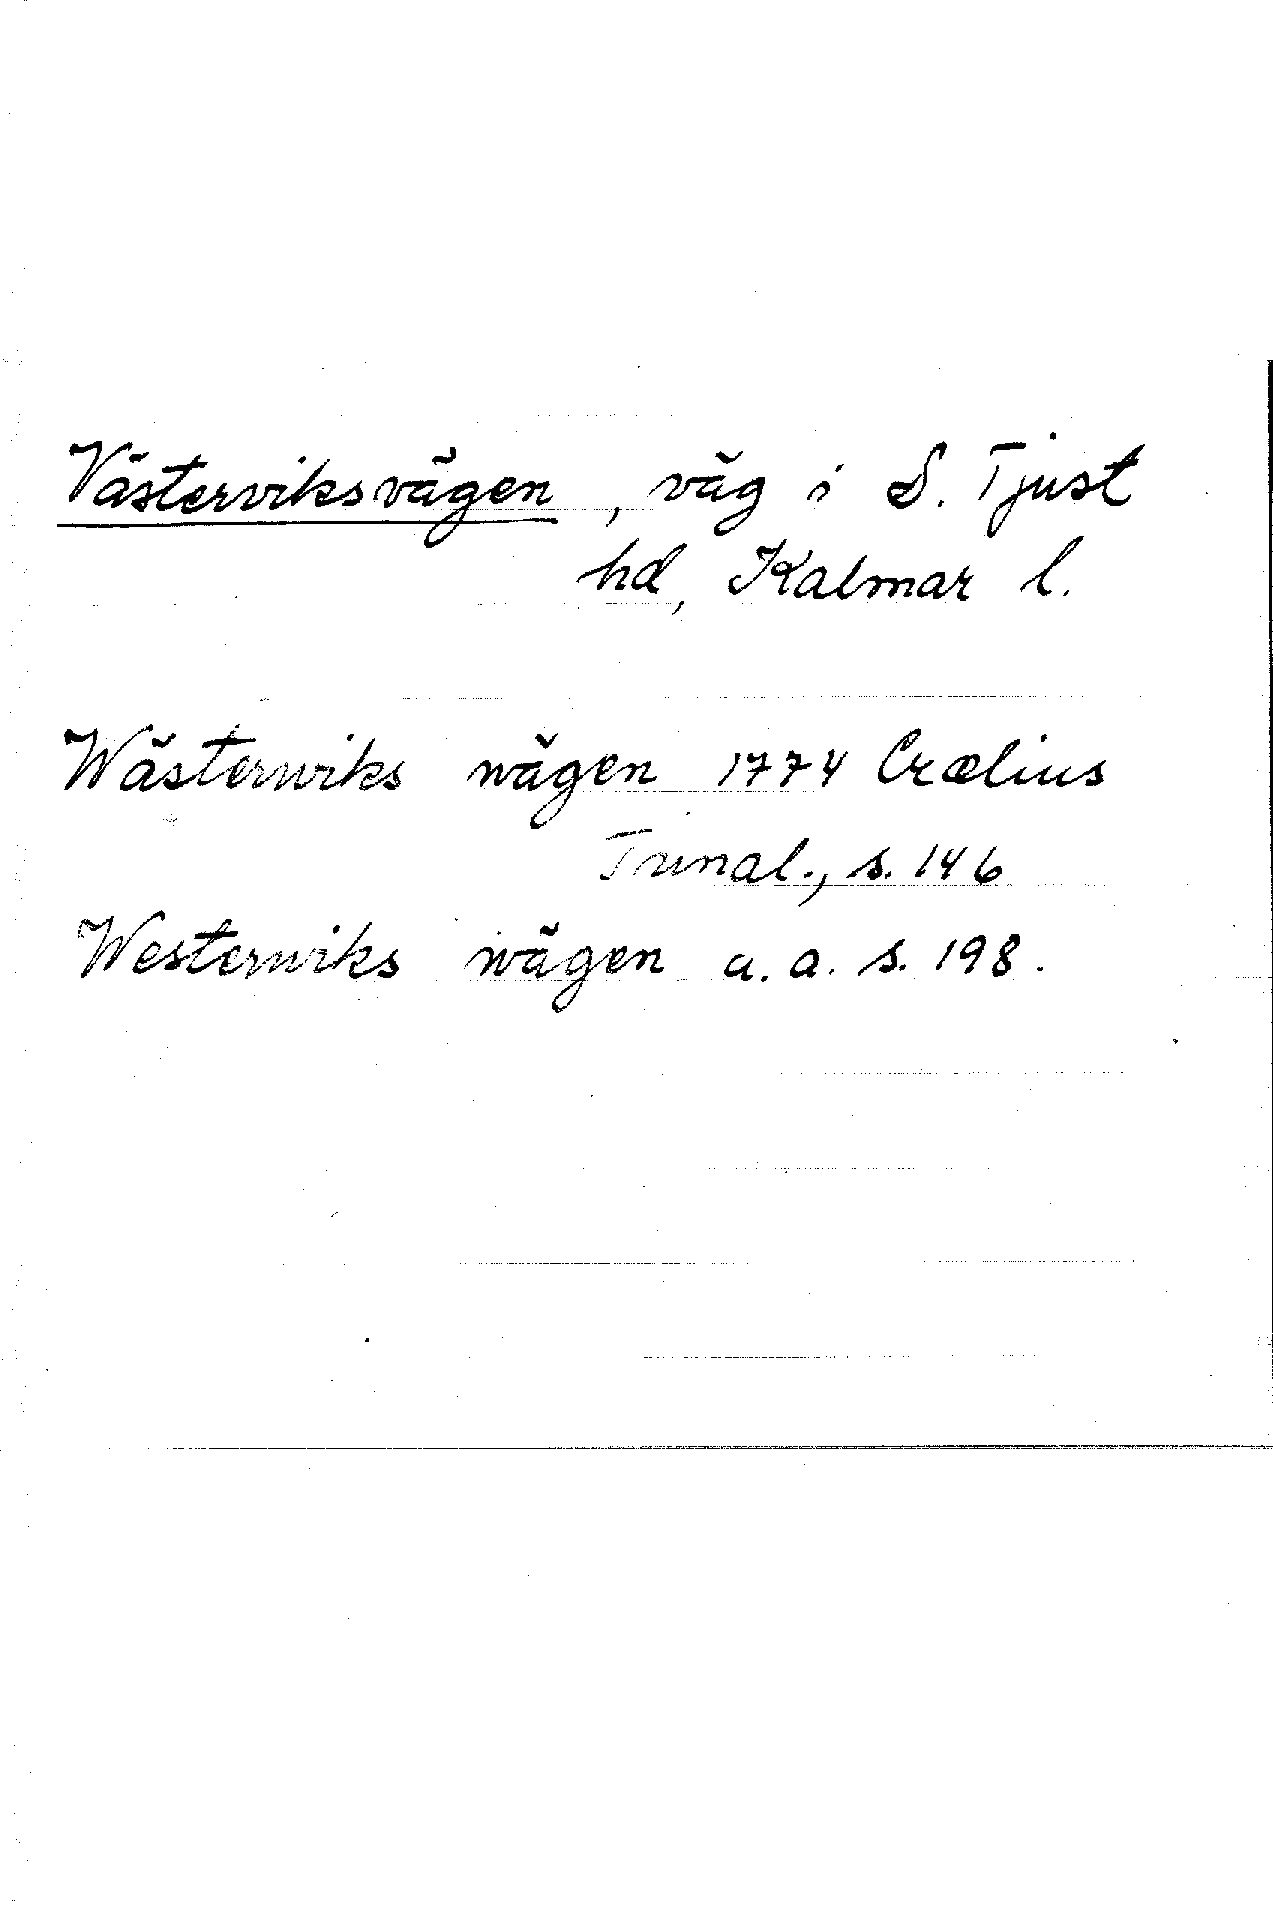 Västerviksvägen, väg i S. Tjust
hd, Kalmar l.
Wästerwiks wägen 1774 Crælius
Trunal., s. 146
Westerwiks wägen a. a. s. 198.